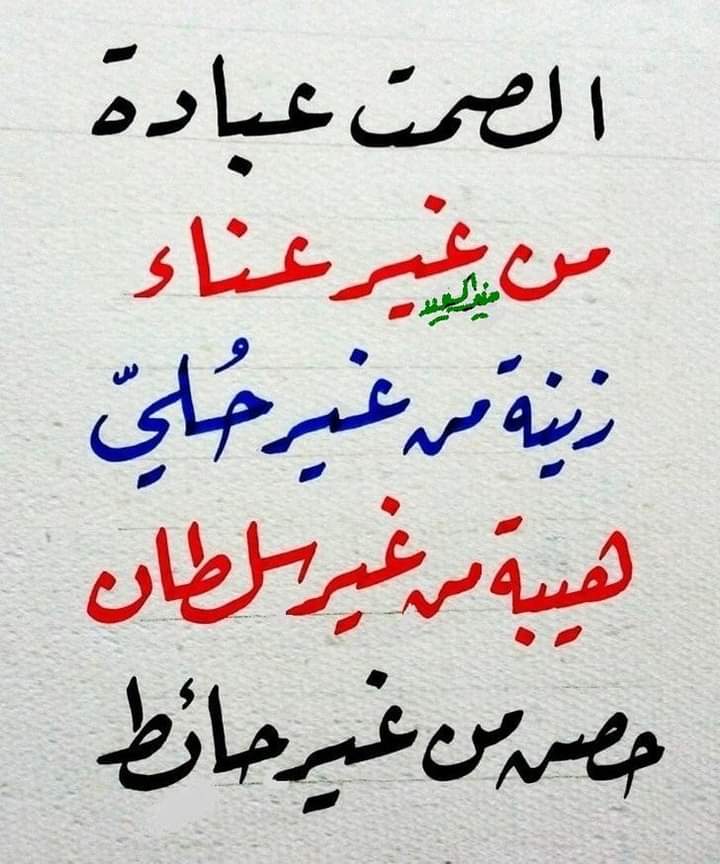 الصمت عبادة
من غير عناء
زينة من غير حُليّ
هيبة من غير سلطان
حصن من غير حائط